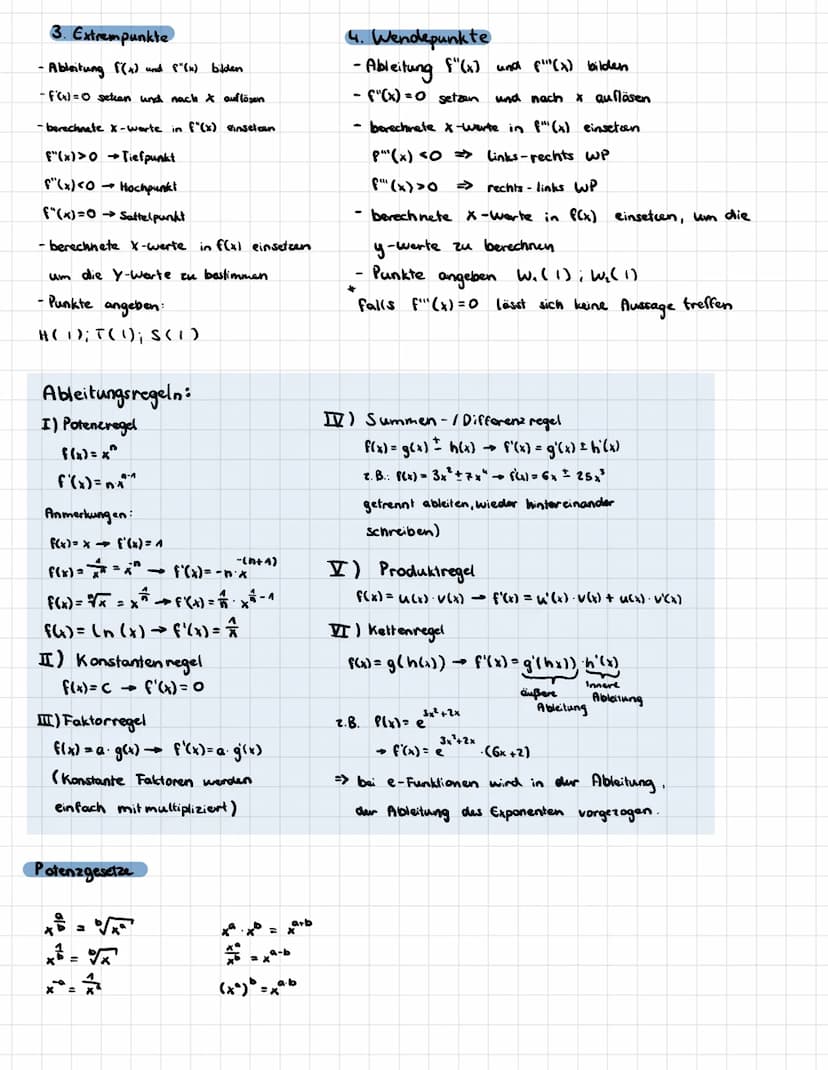 3. Extrempunkte
- Ableitung f'(x) und f''(x) bilden
- f'(x)=0 setzen und nach x auflösen
- berechnete x-Werte in f''(x) einsetzen
f''(x)>0 → Tiefpunkt
f''(x)<0 → Hochpunkt
f''(x)=0 → Sattelpunkt
- berechnete x-Werte in f(x) einsetzen
um die y-Werte zu bestimmen
- Punkte angeben:
H( | ); T( | ); S( | )
4. Wendepunkte
- Ableitung f''(x) und f'''(x) bilden
- f''(x)=0 setzen und nach x auflösen
- berechnete x-Werte in f'''(x) einsetzen
f'''(x)<0 => links-rechts WP
f'''(x)>0 => rechts-links WP
- berechnete x-Werte in f(x) einsetzen, um die
y-Werte zu berechnen
- Punkte angeben W₁( | ); W₂( | )
* falls f'''(x)=0 lässt sich keine Aussage treffen
Ableitungsregeln:
I) Potenzregel
f(x)=x^n
f'(x)=nx^(n-1)
Anmerkungen:
f(x)=x → f'(x)=1
f(x)=1/x^n = x^-n → f'(x)=-n·x^-(n+1)
f(x)=ⁿ√x = x^(1/n) → f'(x)=1/n · x^(1/n -1)
f(x)=ln(x) → f'(x)=1/x
II) Konstantenregel
f(x)=c → f'(x)=0
III) Faktorregel
f(x)=a·g(x) → f'(x)=a·g'(x)
(Konstante Faktoren werden
einfach mitmultipliziert)
IV) Summen-/Differenzregel
f(x)=g(x) ± h(x) → f'(x)=g'(x) ± h'(x)
z.B.: f(x)=3x² ± 7x⁴ → f'(x)=6x ± 25x³
getrennt ableiten, wieder hintereinander
schreiben)
V) Produktregel
f(x)=u(x)·v(x) → f'(x)=u'(x)·v(x)+u(x)·v'(x)
VI) Kettenregel
f(x)=g(h(x)) → f'(x)=g'(hx))·h'(x)
äußere Ableitung
innere Ableitung
z.B. f(x)=e^(3x²+2x)
→ f'(x)=e^(3x²+2x) ·(6x+2)
=> bei e-Funktionen wird in der Ableitung,
der Ableitung des Exponenten vorgezogen.
Potenzgesetze
x^(a/b) = ᵇ√x^a
x^(1/b) = ᵇ√x
x^-a = 1/x^a
x^a · x^b = x^(a+b)
x^a/x^b = x^(a-b)
(x^a)^b = x^(a·b)